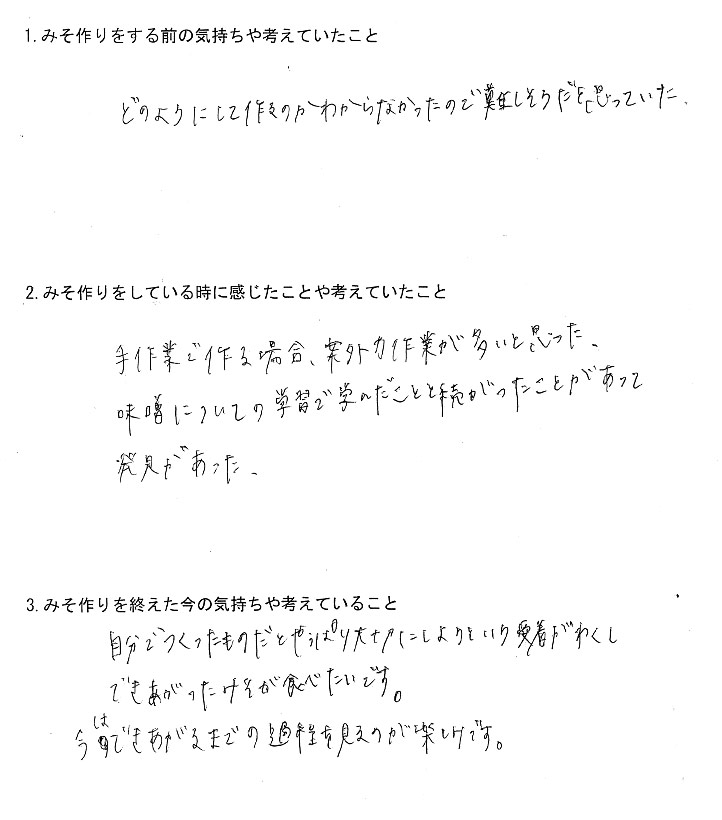 1.みそ作りをする前の気持ちや考えていたこと
どのようにして作るのかわからなかったので難しそうだと思っていた。
2.みそ作りをしている時に感じたことや考えていたこと
手作業で作る場合、案外力作業が多いと思った、
味噌についての学習で学んだことと続がったことがあって
発見があった、
3.みそ作りを終えた今の気持ちや考えていること
自分でつくったものだとやっぱり大切にしようという愛着がわくし
できあがったみそが食べたいです。
今はできあがるまでの過程を見るのが楽しみです。